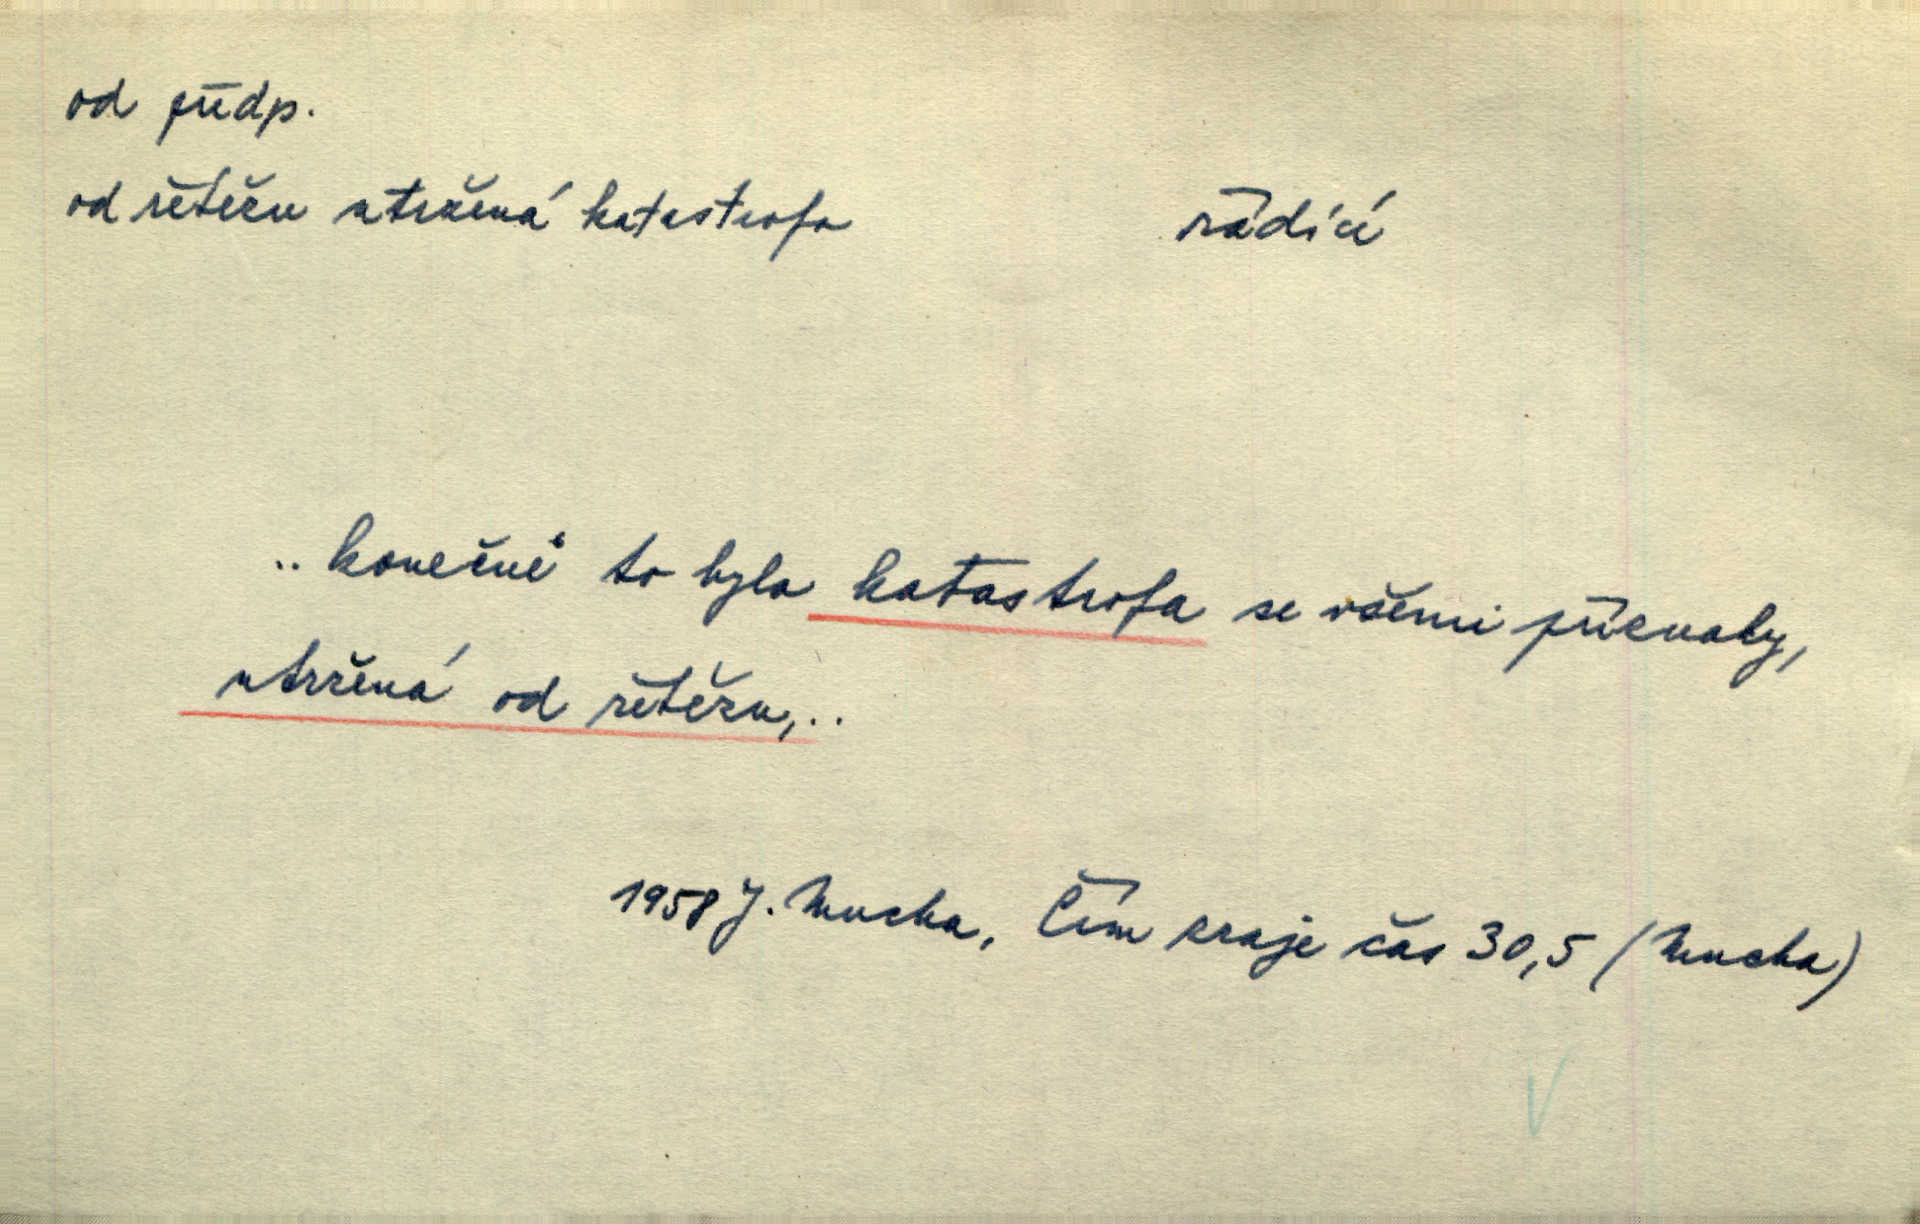 od předp.
od řetězu utržená katastrofa řadící
.. konečně to byla katastrofa se všemi příznaky,
utržená od řetězu, ..
1958 J. Mucha, Čím zraje čas 30,5 (Mucha)
V